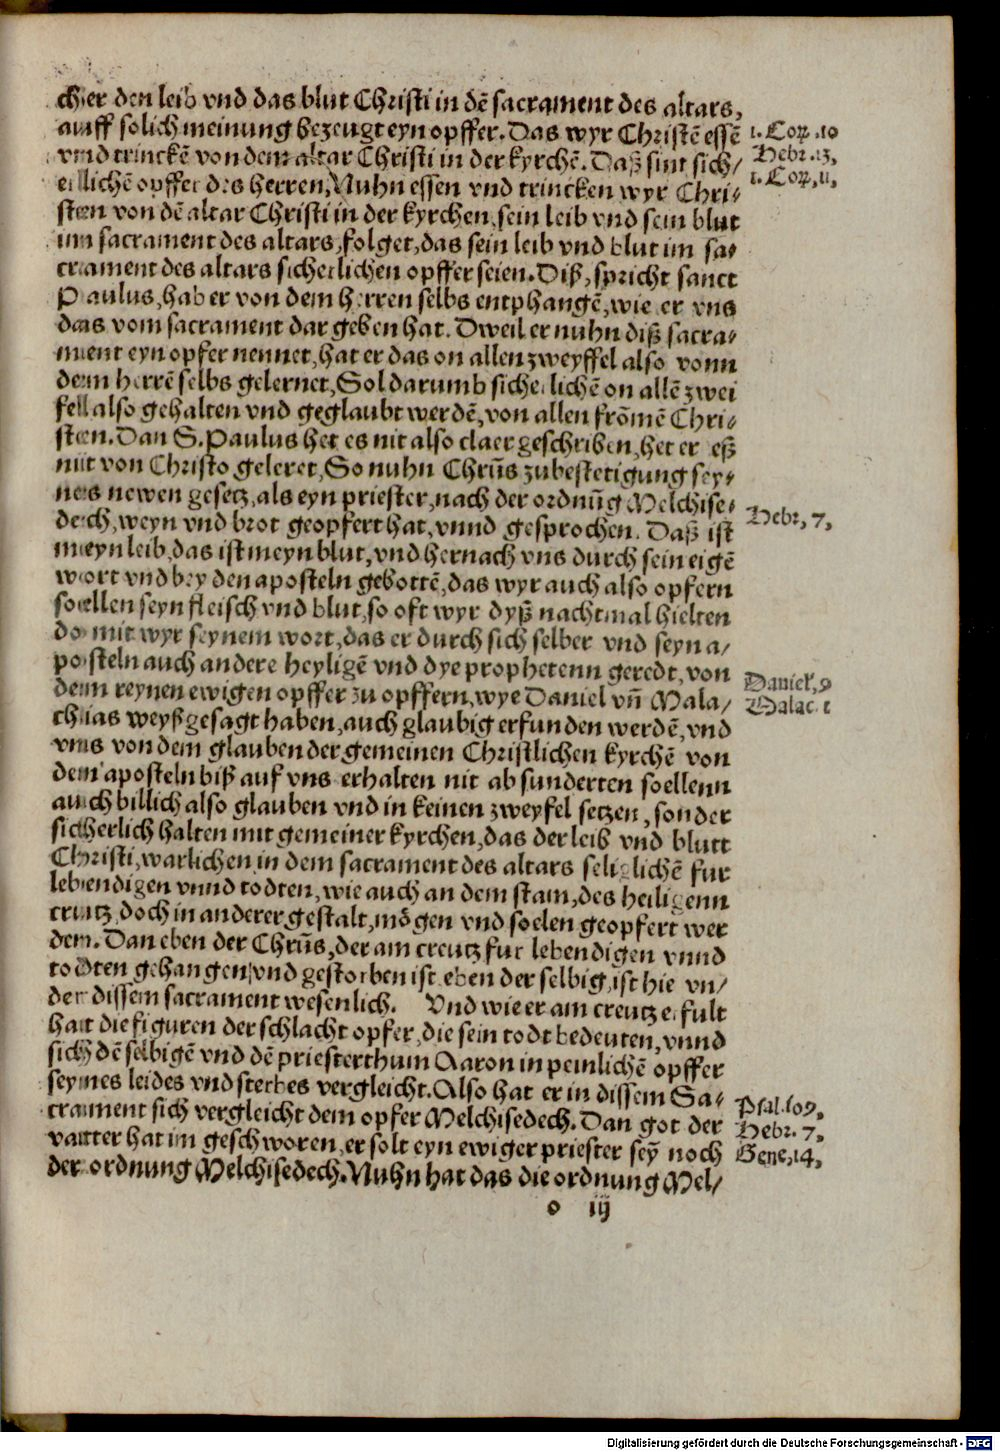 cher den leib vnd das blut Christi in dẽ sacrament des altars,
auff solich meinung bezeugt eyn opffer. Das wyr Christẽ essẽ
vnd trinckẽ von dem altar Christi in der kyrchẽ. Daß sint sich/
erlichẽ opffer des herren, Nuhn essen vnd trincken wyr Chri-
sten von dẽ altar Christi in der kyrchen, sein leib vnd sein blut
im sacrament des altars, folget, das sein leib vnd blut im sa-
crament des altars sicherlichen opffer seien. Diß, spricht sanct
Paulus, hab er von dem herren selbs entphangẽ, wie er vns
das vom sacrament dar geben hat. Dweil er nuhn diß sacra-
ment eyn opfer nennet, hat er das on allen zweyffel also vonn
dem herrẽ selbs gelernet, Sol darumb sicherlichẽ on allẽ zwei
fell also gehalten vnd geglaubt werdẽ, von allen frõmẽ Chri-
sten. Dan S. Paulus het es nit also claer geschriben, het er eß
nit von Christo geleret, So nuhn Chrũs zu bestetigung sey-
nes newen gesetz, als eyn priester, nach der ordnũg Melchise-
dech, weyn vnd brot geopfert hat, vnnd gesprochen. Daß ist
meyn leib, das ist meyn blut, vnd hernach vns durch sein eigẽ
wort vnd bey den aposteln gebottẽ, das wyr auch also opfern
soellen seyn fleisch vnd blut, so oft wyr dyß nachtmal hielten
do mit wyr seynem wort, das er durch sich selber vnd seyn a/
posteln auch andere heyligẽ vnd dye prophetenn geredt, von
dem reynen ewigen opffer zu opffern, wye Daniel vñ Mala/
chias weyßgesagt haben, auch glaubig erfunden werdẽ, vnd
vns von dem glauben der gemeinen Christlichen kyrchẽ von
dem aposteln biß auf vns erhalten nit absunderten soellenn
auch billich also glauben vnd in keinen zweyfel setzen, sonder
sicherlich halten mit gemeiner kyrchen, das der leib vnd blutt
Christi, warlichen in dem sacrament des altars seliglichẽ fur
lebendigen vnnd todten, wie auch an dem stam, des heiligenn
creutz, doch in anderer gestalt, mögen vnd soelen geopfert wer
dem. Dan eben der Chrũs, der am creutz fur lebendigen vnnd
todten gehangen, vnd gestorben ist, eben der selbig, ist hie vn/
der dissem sacrament wesenlich. Vnd wie er am creutz erfult
hat die figuren der schlacht opfer, die sein todt bedeuten, vnnd
sich dẽ selbigẽ vnd dẽ priesterthum Aaron in peinlichẽ opffer
seynes leides vnd sterbes vergleicht. Also hat er in dissem Sa-
crament sich vergleicht dem opfer Melchisedech. Dan got der
vatter hat im geschworen, er solt eyn ewiger priester seỹ noch
der ordnung Melchisedech. Nuhn hat das die ordnung Mel/
o iij
1. Cor. 10
Hebr. 13,
1. Cor, 11,
Hebr, 7,
Daniel, 9
Malac. 1
Psal. 109,
Hebr. 7,
Gene, 14,
Digitalisierung gefördert durch die Deutsche Forschungsgemeinschaft - DFG